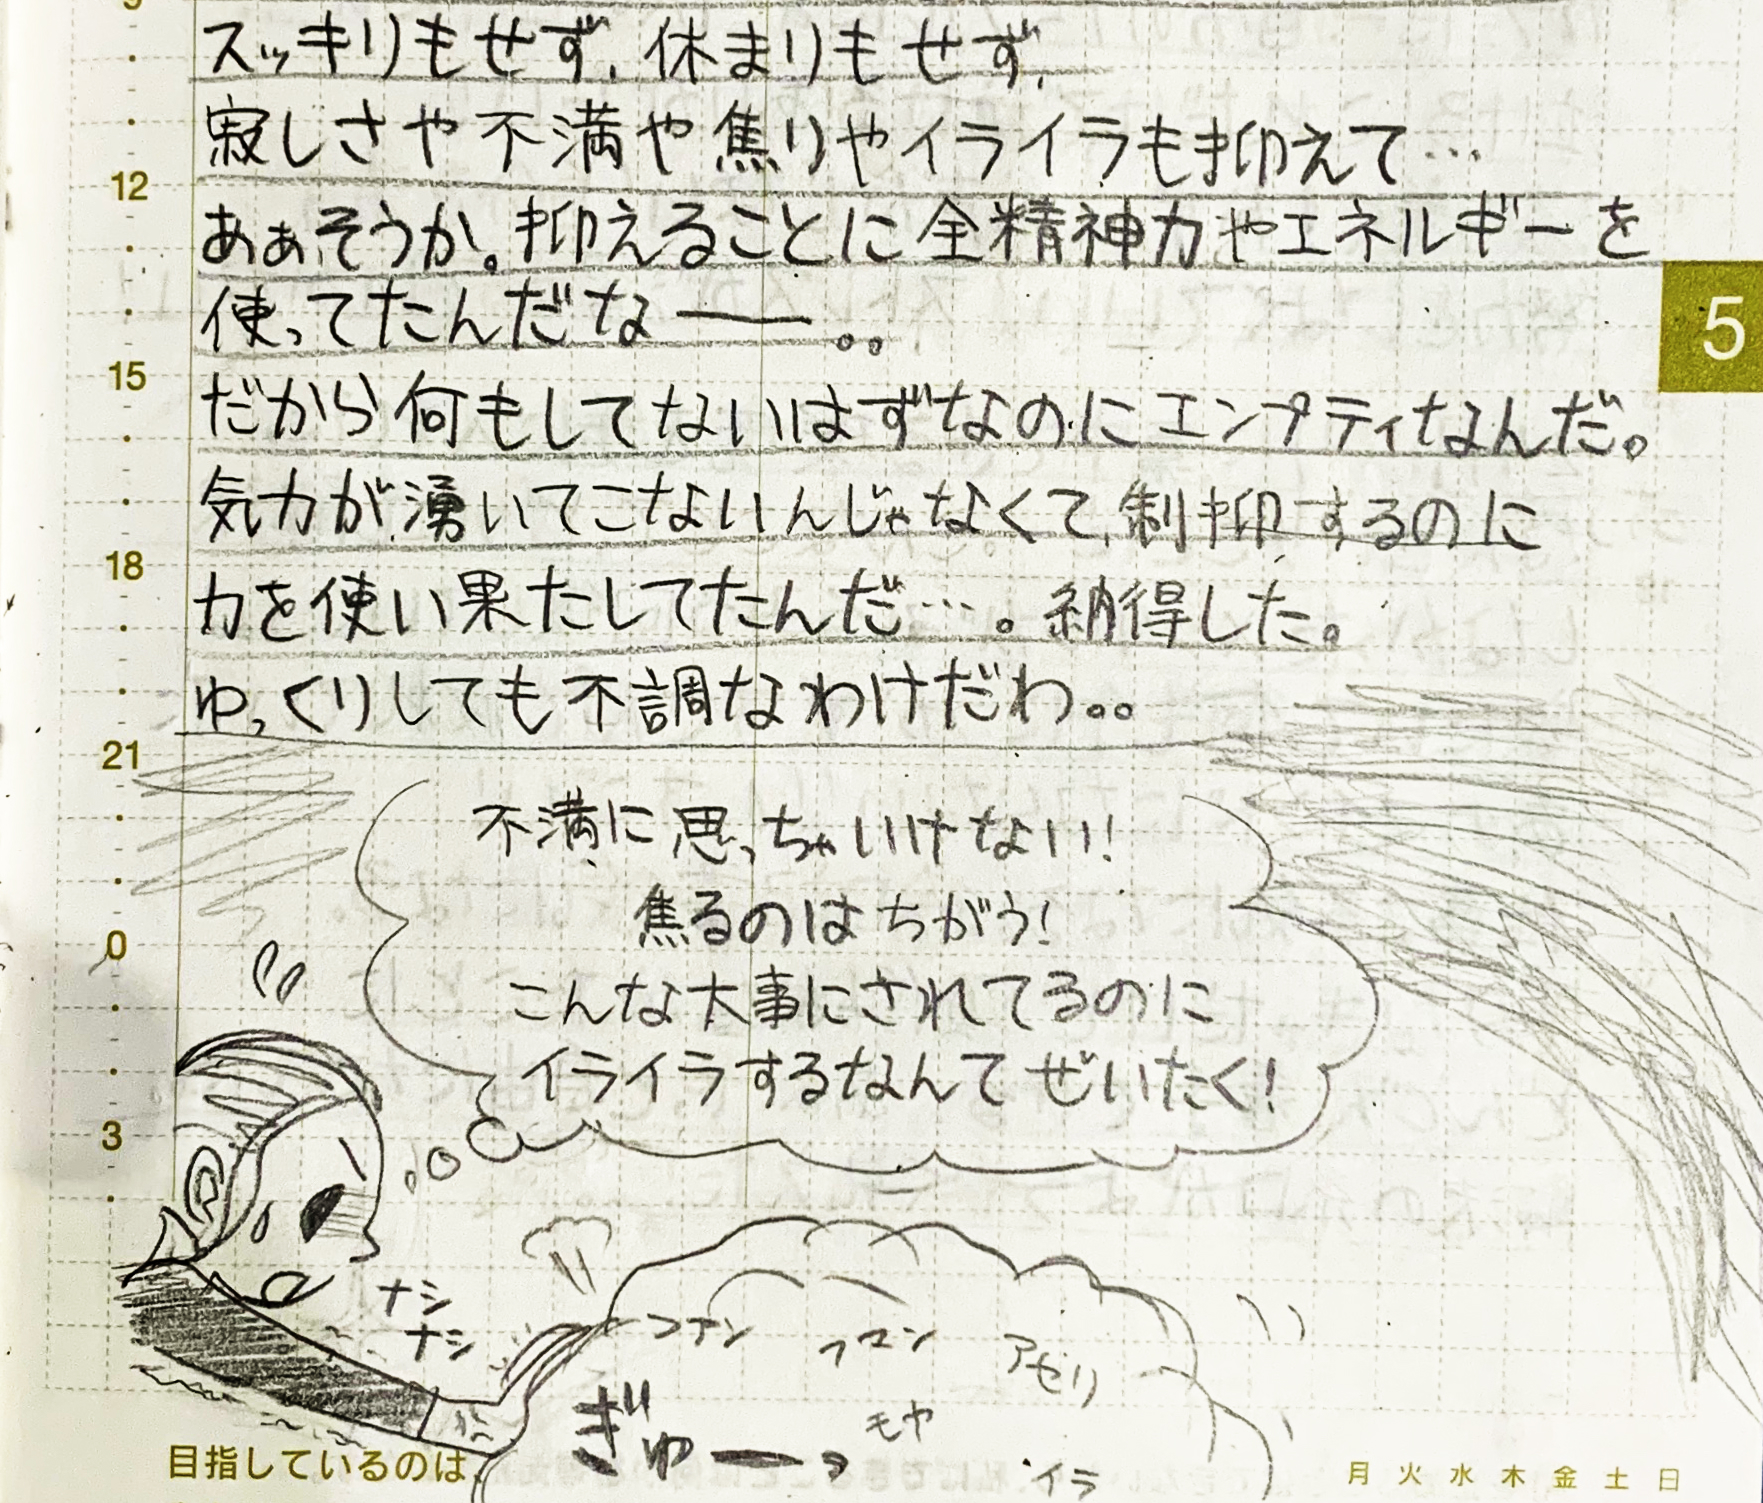 9
スッキリもせず、休まりもせず、
寂しさや不満や焦りやイライラも抑えて…
12
あぁそうか。抑えることに全精神力やエネルギーを
使ってたんだなー。。
5
15
だから何もしてないはずなのにエンプティなんだ。
気力が湧いてこないんじゃなくて、制抑するのに
18
力を使い果たしてたんだ…。納得した。
ゆっくりしても不調なわけだわ。。
21
不満に思っちゃいけない!
焦るのはちがう!
0
こんな大事にされてるのに
イライラするなんてぜいたく!
3
ナシ
ナシ
フアン
フマン
アセリ
ぎゅーっ
モヤ
イラ
目指しているのは、
月 火 水 木 金 土 日